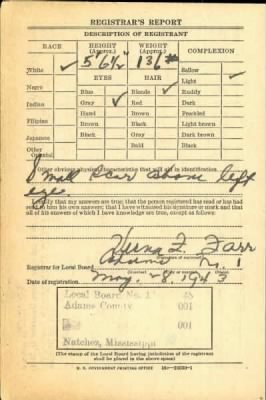 REGISTRAR'S REPORT
DESCRIPTION OF REGISTRANT
RACE HEIGHT (Approx.) WEIGHT (Approx.) COMPLEXION
5'6½" 136# Sallow
White ✓ EYES HAIR Light ✓
Negro Blue Blonde ✓ Ruddy
Gray ✓ Red Dark
Indian Hazel Brown Freckled
Filipino Brown Black Light brown
Japanese Black Gray Dark brown
Other Bald Black
Oriental
Other obvious physical characteristics that will aid in identification
Small scar above left
eye.
I certify that my answers are true; that the person registered has read or has had
read to him his own answers; that I have witnessed his signature or mark and that
all of his answers of which I have knowledge are true, except as follows:
Farr
Registrar for Local Board Adams No. 1
Date of registration May 28, 1943
Local Board No. 1
Adams County 001
001
Natchez, Mississippi
(The stamp of the Local Board having jurisdiction of the registrant
shall be placed in the above space.)
U. S. GOVERNMENT PRINTING OFFICE